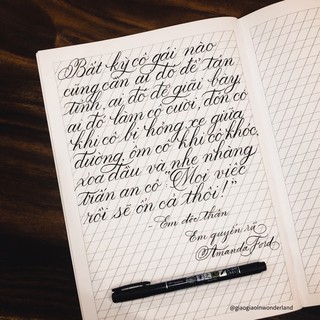 Bất kỳ cô gái nào
cũng cần ai đó để tán
tỉnh, ai đó để giãi bày,
ai đó làm cô cười, đón cô
khi cô bị hỏng xe giữa
đường, ôm cô khi cô khóc,
xoa đầu và nhẹ nhàng
trấn an cô "Mọi việc
rồi sẽ ổn cả thôi!"
- Em độc thân
Em quyến rũ
Amanda Ford
@giaogiaoinwonderland